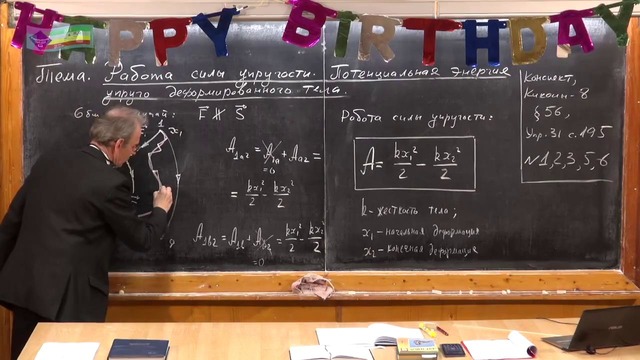 HAPPY BIRTHDAY
Тема. Работа силы упругости. Потенциальная энергия
упруго деформированного тела.
F⃗ ∦ S⃗
1 x₁
A₁ₐ₂ = A₁ₐ + Aₐ₂ =
=0
= kx₁²/2 - kx₂²/2
=0
Работа силы упругости:
A = kx₁²/2 - kx₂²/2
k - жесткость тела;
x₁ - начальная деформация
x₂ - конечная деформация
Конспект,
Кикоин-8
§56,
Упр.31 с.195
№1,2,3,5,6